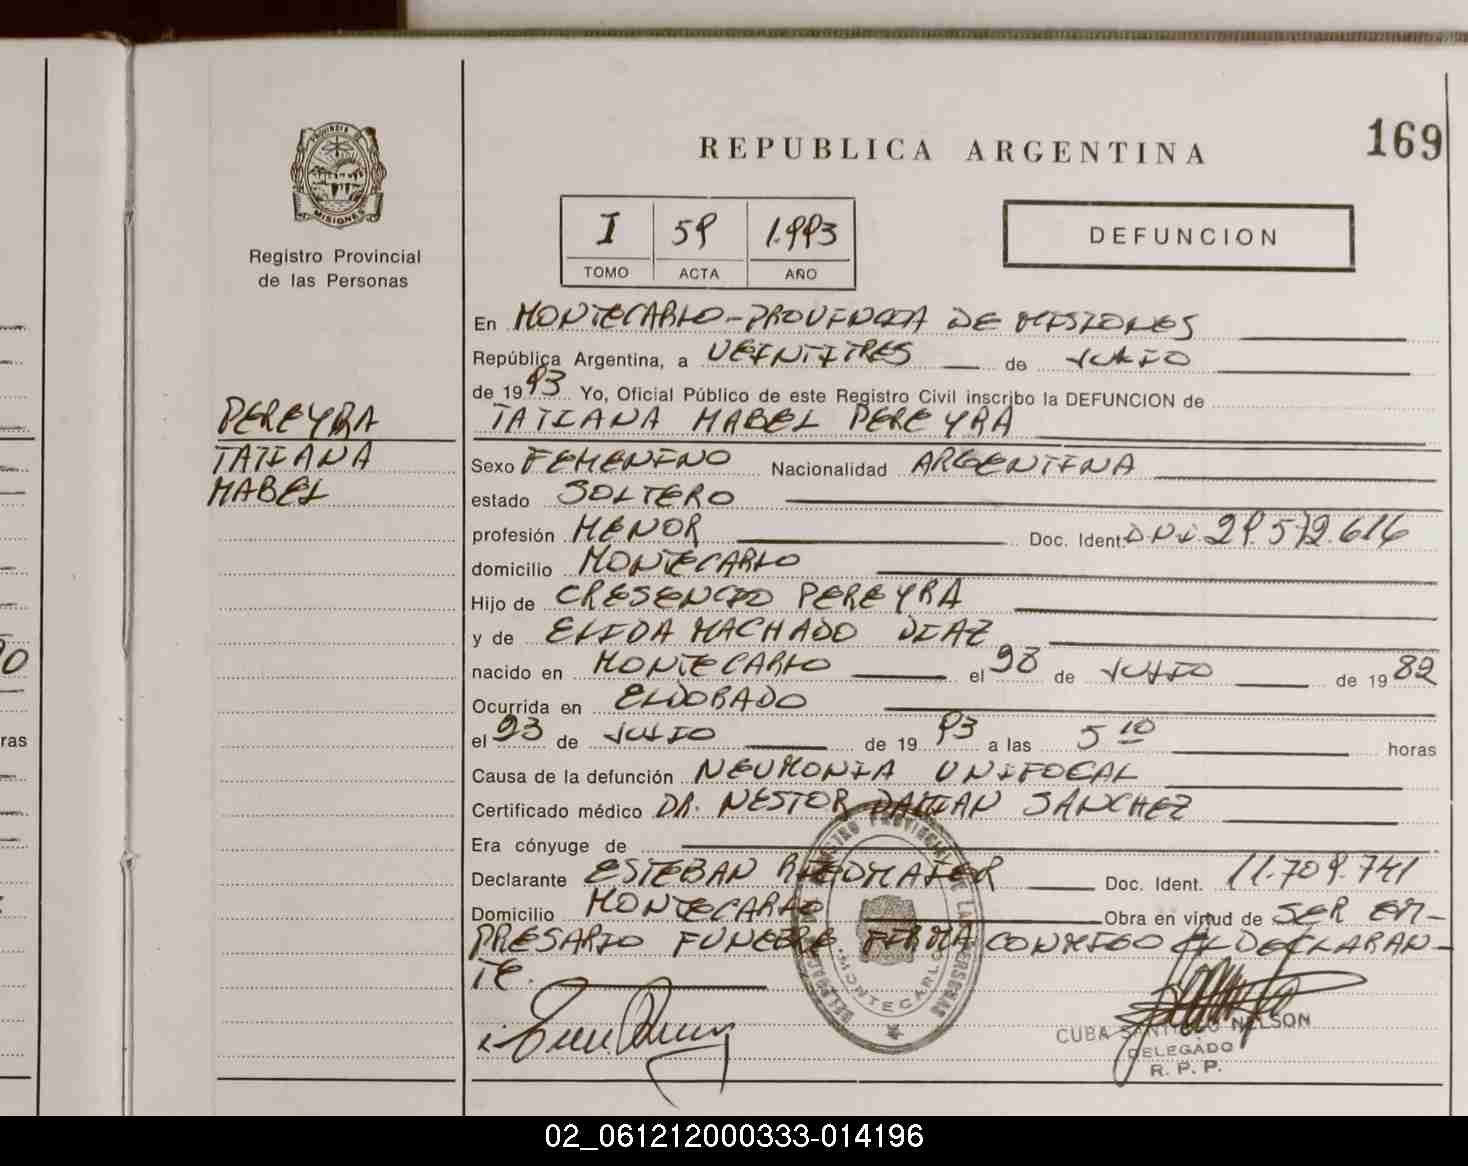 169
REPUBLICA ARGENTINA
PROVINCIA DE
MISIONES
Registro Provincial
de las Personas
I 59 1.993
TOMO ACTA AÑO
DEFUNCION
En MONTECARLO-PROVINCIA DE MISIONES
República Argentina, a VEINTITRES de JULIO
de 1993 Yo, Oficial Público de este Registro Civil inscribo la DEFUNCION de
TATIANA MABEL PEREYRA
PEREYRA
TATIANA
MABEL
Sexo FEMENINO Nacionalidad ARGENTINA
estado SOLTERO
profesión MENOR Doc. Ident. DNI. 29.572.616
domicilio MONTECARLO
Hijo de CRESENCIO PEREYRA
y de ELIDA MACHADO DIAZ
nacido en MONTECARLO el 28 de JULIO de 1982
Ocurrida en ELDORADO
el 23 de JULIO de 1993 a las 5 10 horas
Causa de la defunción NEUMONIA UNIFOCAL
Certificado médico DR. NESTOR DAMIAN SANCHEZ
Era cónyuge de
Declarante ESTEBAN Doc. Ident. 11.709.741
Domicilio MONTECARLO Obra en virtud de SER EM-
PRESARIO FUNEBRE FIRMA CONMIGO EL DECLARAN-
TE.
MONTECARLO
CUBA SANTIAGO NELSON
DELEGADO
R. P. P.
ras
02_061212000333-014196